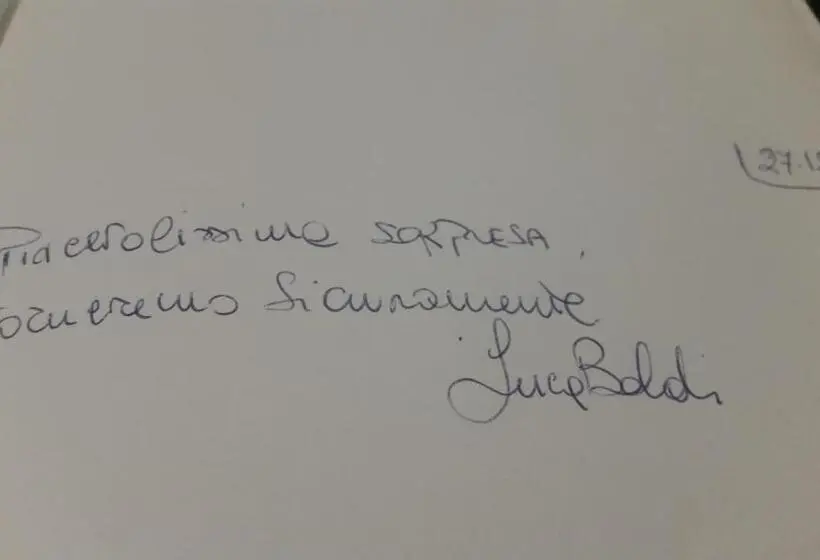 27.12
Piacevolissima SORPRESA,
orneremo Sicuramente
Luca Boldi